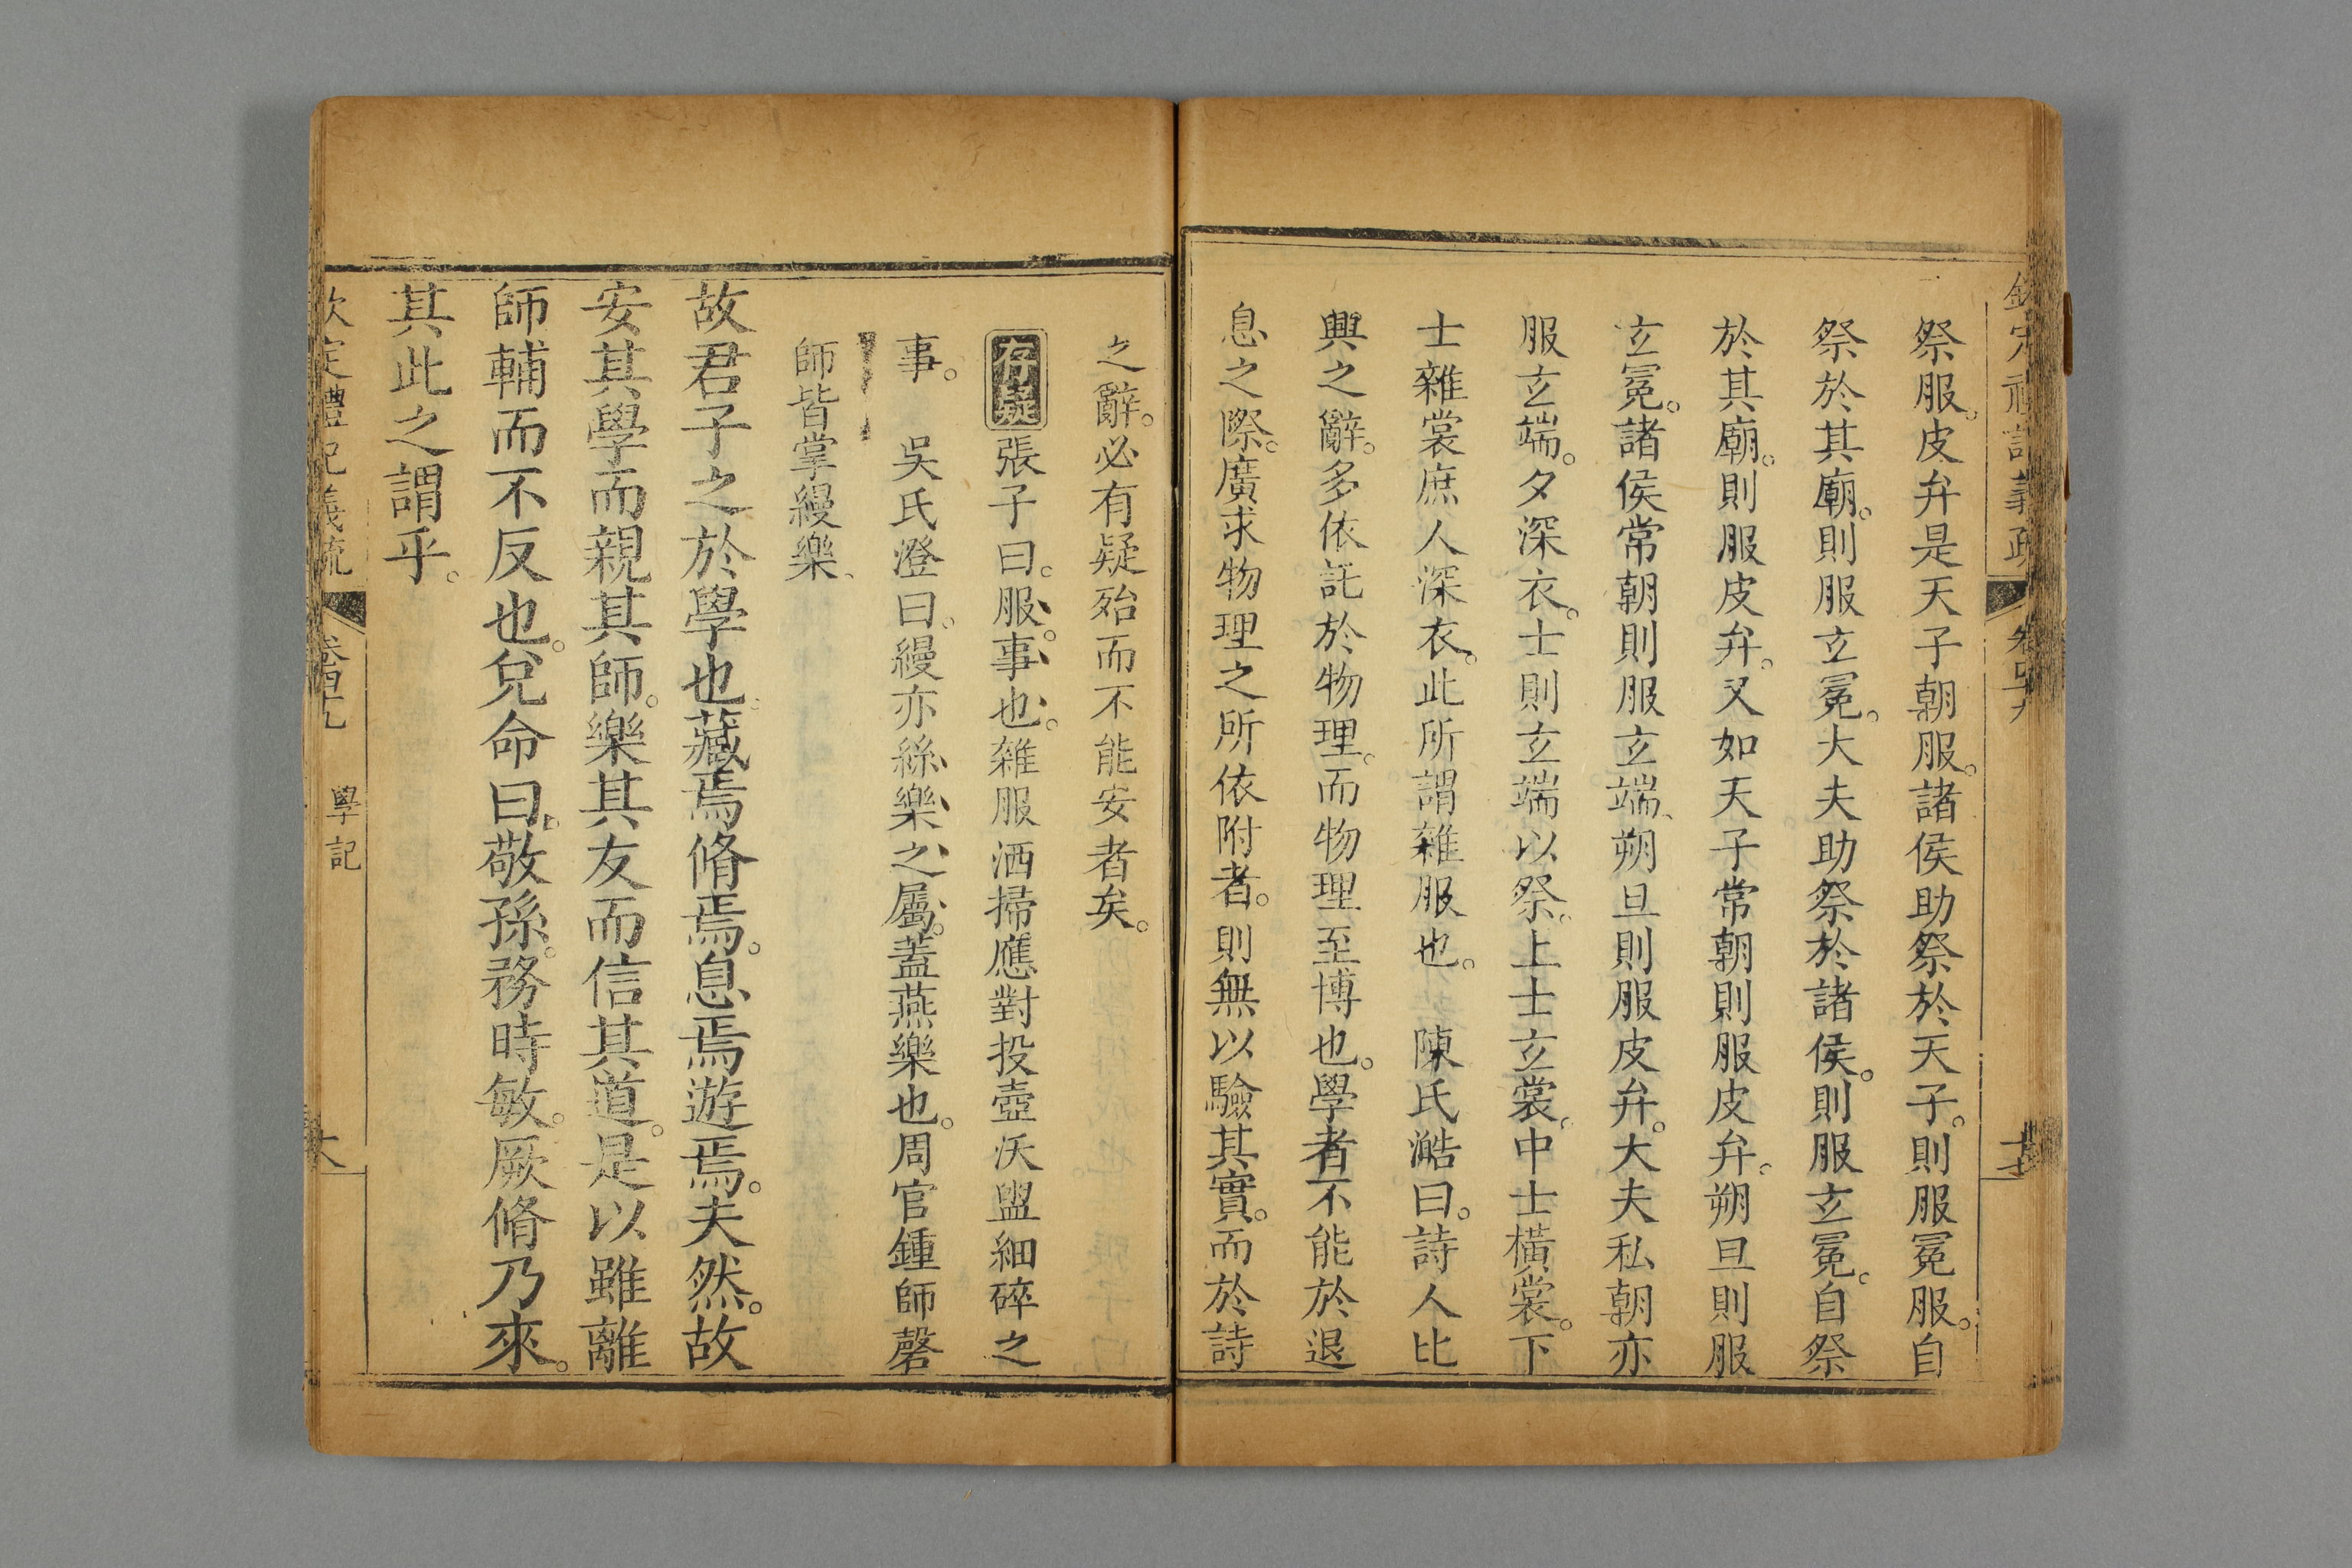 祭服。皮弁是天子朝服。諸侯助祭於天子。則服冕服。自
祭於其廟。則服玄冕。大夫助祭於諸侯。則服玄冕。自祭
於其廟。則服皮弁。又如天子常朝則服皮弁。朔旦則服
玄冕。諸侯常朝則服玄端、朔旦則服皮弁。大夫私朝亦
服玄端。夕深衣。士則玄端以祭。上士玄裳。中士橫裳。下
士雜裳庶人深衣。此所謂雜服也。 陳氏澔曰。詩人比
興之辭。多依託於物理。而物理至博也。學者不能於退
息之際。廣求物理之所依附者。則無以驗其實。而於詩
之辭。必有疑殆而不能安者矣。
存疑 張子曰。服。事也。雜服洒掃應對投壺沃盥細碎之
事。 吳氏澄曰。縵亦絲樂之屬。蓋燕樂也。周官鍾師磬
師皆掌縵樂、
故君子之於學也。藏焉脩焉。息焉遊焉。夫然。故
安其學而親其師。樂其友而信其道。是以雖離
師輔而不反也。兌命曰。敬孫。務時敏。厥脩乃來。
其此之謂乎。
欽定禮記義疏
學記